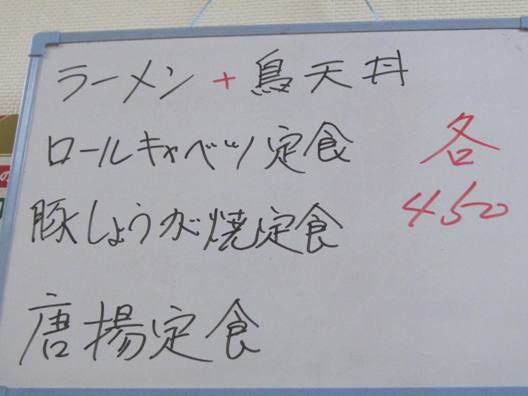 ラーメン+鳥天丼
ロールキャベツ定食
各
豚しょうが焼定食
450
唐揚定食